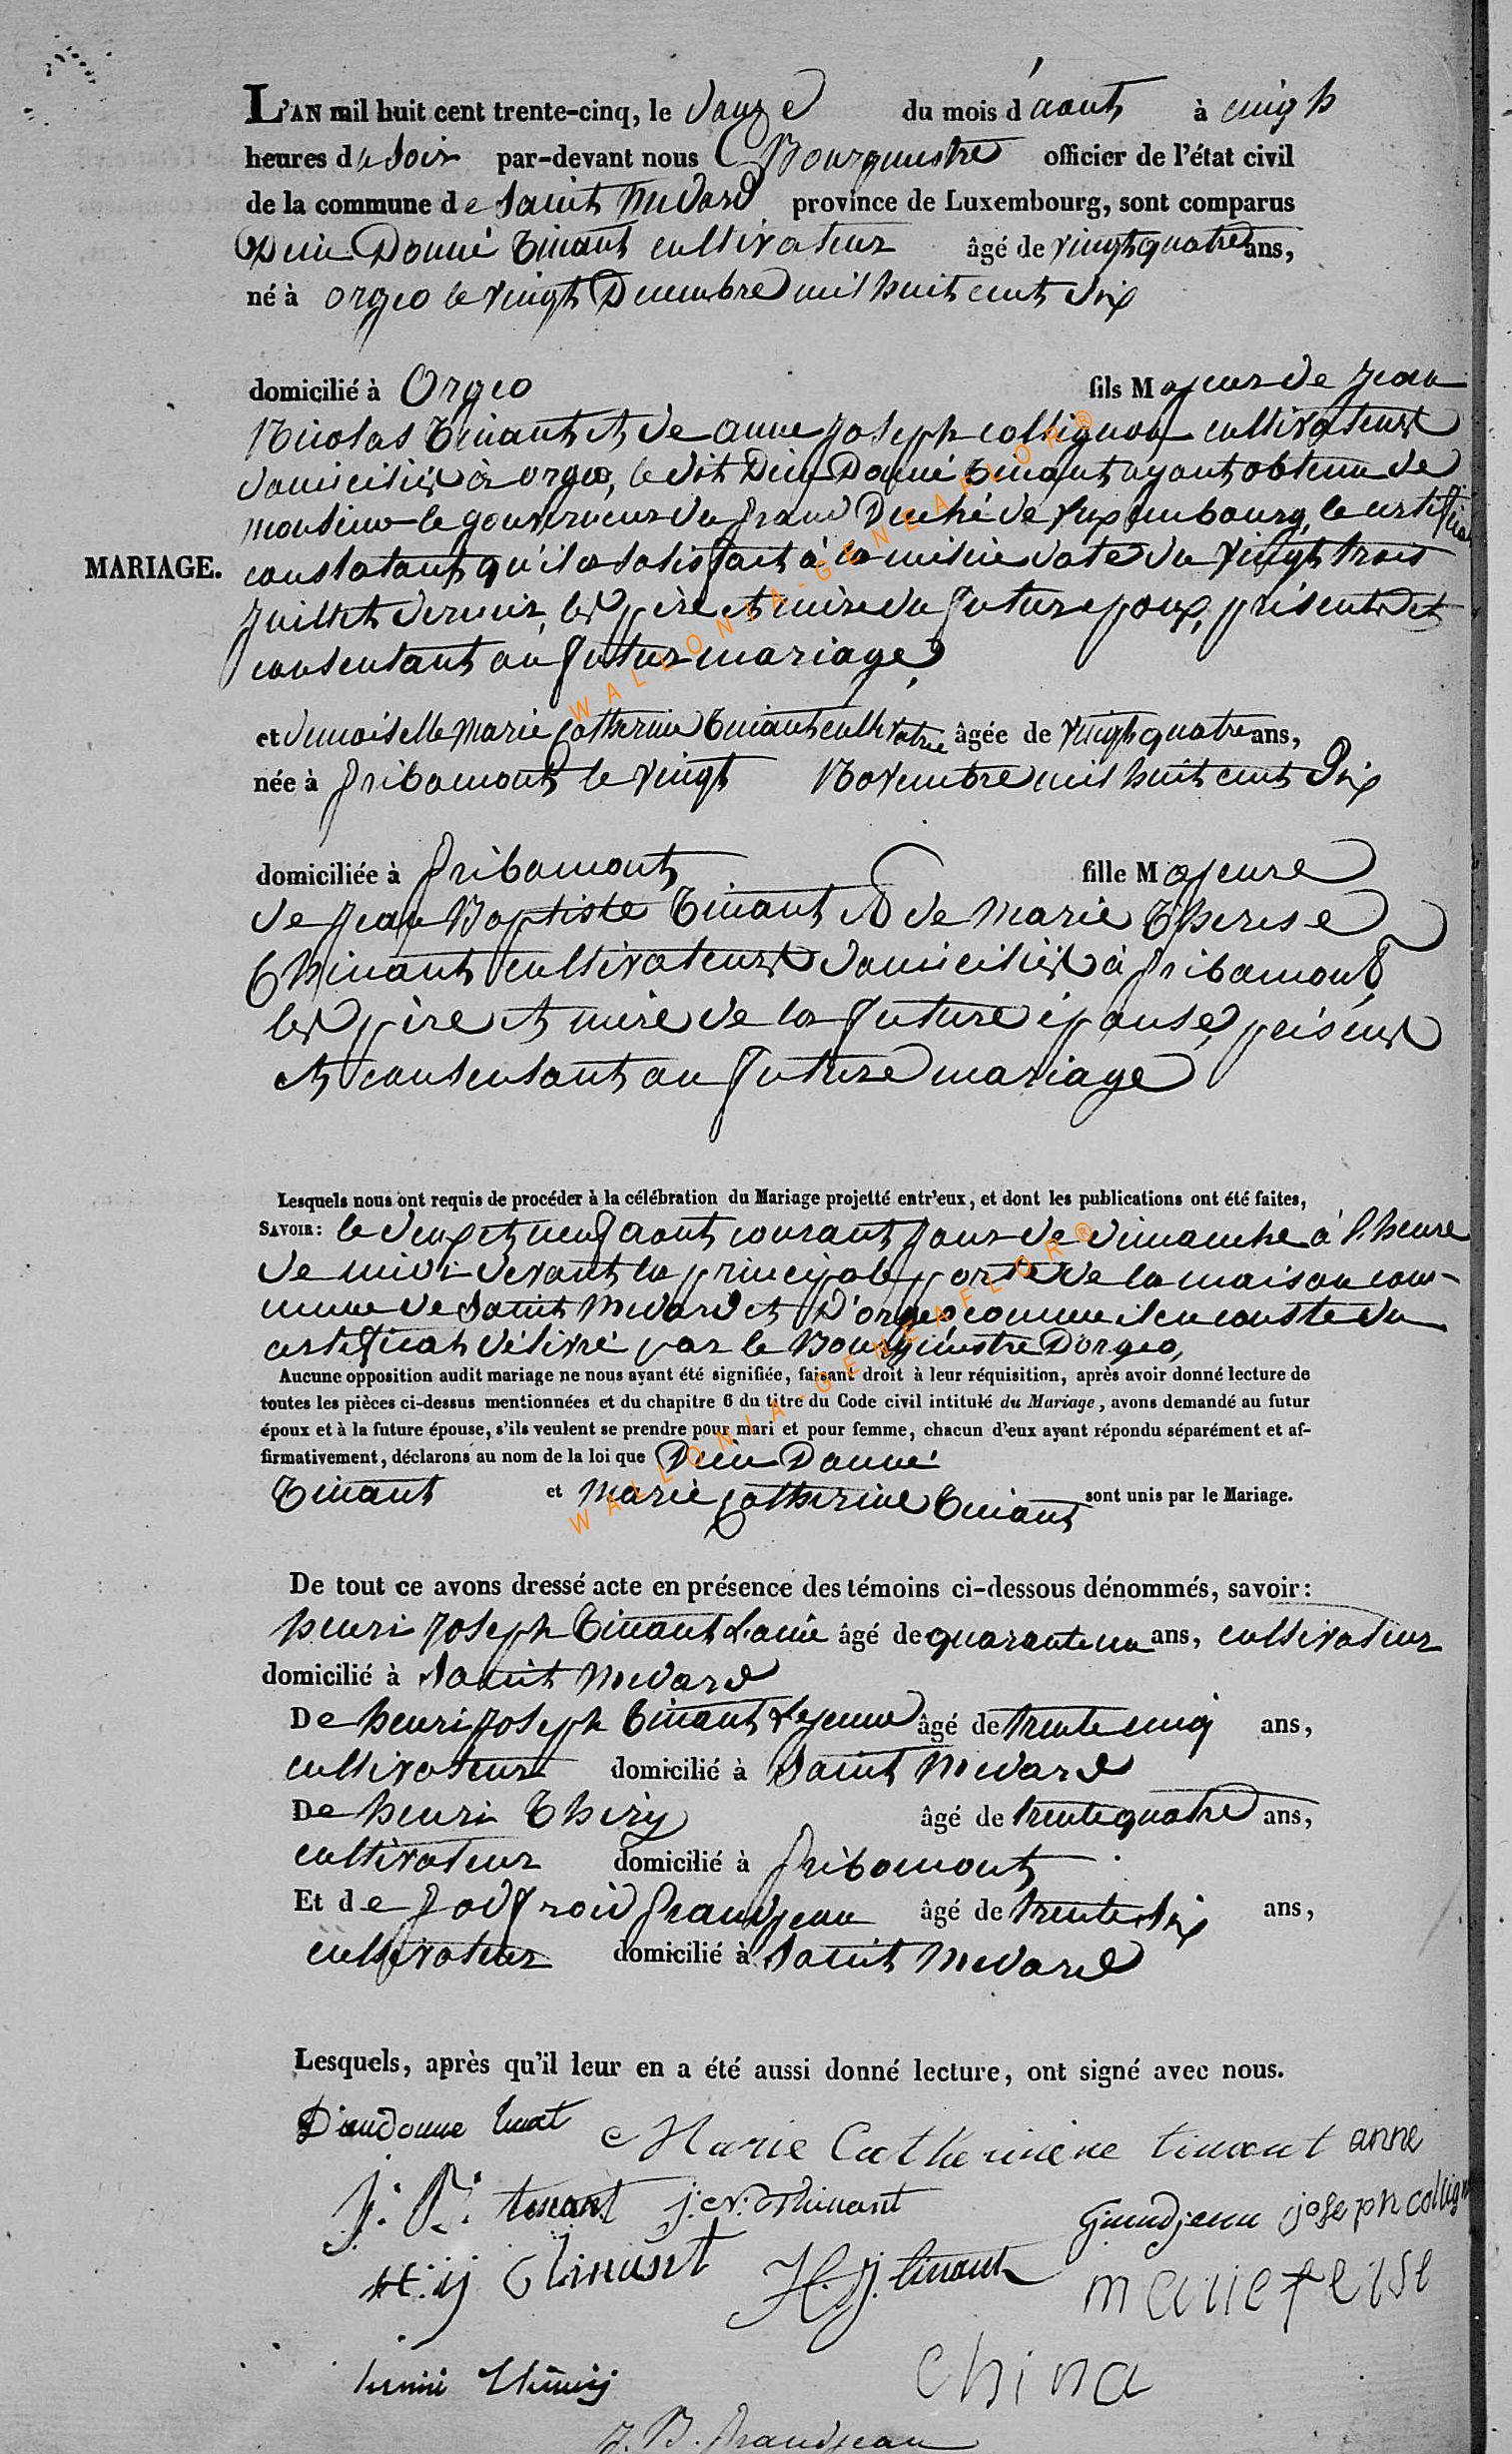 L'AN mil huit cent trente-cinq, le douze du mois d'aout à cinq h
heures du soir par-devant nous Bourgmestre officier de l'état civil
de la commune de Saint Medard province de Luxembourg, sont comparus
Dieu Donné Tinant cultivateur âgé de vingt quatre ans,
né à orgeo le vingt Decembre mil huit cent dix
domicilié à Orgeo fils Majeur de jean
Nicolas Tinant et de anne joseph collignon cultivateurs
domiciliés à orgeo, le dit Dieu Donné Tinant ayant obtenu de
monsieur le gouverneur du grand Duché de luxembourg, le certificat
MARIAGE. constatant qu'il a satisfait à la milice daté du vingt trois
juillet dernier, les père et mère du futur epoux, présents et
consentant au futur mariage,
et demoiselle marie catherine Tinant cultivatrice âgée de vingt quatre ans,
née à gribomont le vingt Novembre mil huit cent dix
domiciliée à gribomont fille Majeure
de jean Baptiste Tinant et de marie Therese
Thinant cultivateurs domiciliés à gribomont,
les père et mère de la future épouse, présens
et consentant au future mariage
Lesquels nous ont requis de procéder à la célébration du Mariage projetté entr'eux, et dont les publications ont été faites,
SAVOIR: le deux et neuf aout courant jour de dimanche à l'heure
de midi devant la principale porte de la maison com-
mune de Saint Medard et D'orgeo, comme il en conste du
certificat délivré par le Bourgmestre D'orgeo,
Aucune opposition audit mariage ne nous ayant été signifiée, faisant droit à leur réquisition, après avoir donné lecture de
toutes les pièces ci-dessus mentionnées et du chapitre 6 du titre du Code civil intitulé du Mariage, avons demandé au futur
époux et à la future épouse, s'ils veulent se prendre pour mari et pour femme, chacun d'eux ayant répondu séparément et af-
firmativement, déclarons au nom de la loi que Dieu Donné
Tinant et marie catherine Tinant sont unis par le Mariage.
De tout ce avons dressé acte en présence des témoins ci-dessous dénommés, savoir:
henri joseph Tinant L'ainé âgé de quarante un ans, cultivateur
domicilié à Saint Medard
De henri joseph Tinant Lejeune âgé de trente cinq ans,
cultivateur domicilié à Saint Medard
De henri Thiry âgé de trente quatre ans,
cultivateur domicilié à gribomont
Et de godfroid grandjean âgé de trente six ans,
cultivateur domicilié à Saint Medard
Lesquels, après qu'il leur en a été aussi donné lecture, ont signé avec nous.
Dieudonne tinat Marie Catherinene tinant anne
J. B. tinant j. N. Thinant Grandjean joseph collign
H. j thinant H. J. tinant marie terese
henri Thiry china
J. B. grandjean
WALLONIA-GENEAFLOR®
WALLONIA-GENEAFLOR®